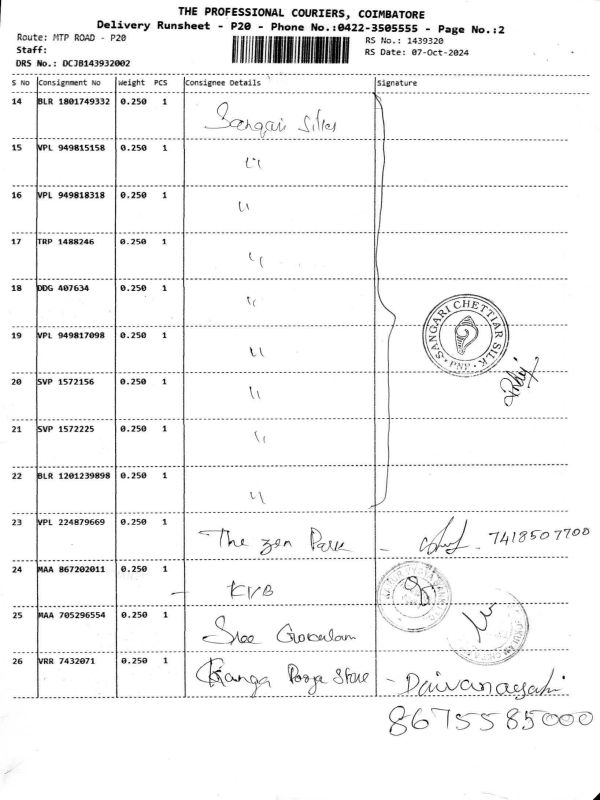 THE PROFESSIONAL COURIERS, COIMBATORE
Delivery Runsheet - P20 - Phone No.:0422-3505555 - Page No.:2
Route: MTP ROAD - P20
RS No.: 1439320
Staff:
RS Date: 07-Oct-2024
DRS No.: DCJB143932002
S No Consignment No Weight PCS Consignee Details Signature
14 BLR 1801749332 0.250 1 Sangari Silks
15 VPL 949815158 0.250 1 "
16 VPL 949818318 0.250 1 "
17 TRP 1488246 0.250 1 "
18 DDG 407634 0.250 1 "
SANGARI CHETTIAR SILK
PNP
19 VPL 949817098 0.250 1 "
20 SVP 1572156 0.250 1 "
21 SVP 1572225 0.250 1 "
22 BLR 1201239898 0.250 1 "
23 VPL 224879669 0.250 1 The Zen Park - 7418507700
24 MAA 867202011 0.250 1 KVB
25 MAA 705296554 0.250 1 Sree Gokulam
26 VRR 7432071 0.250 1 Ganga Pooja Store - Daivanayaki
8675585000